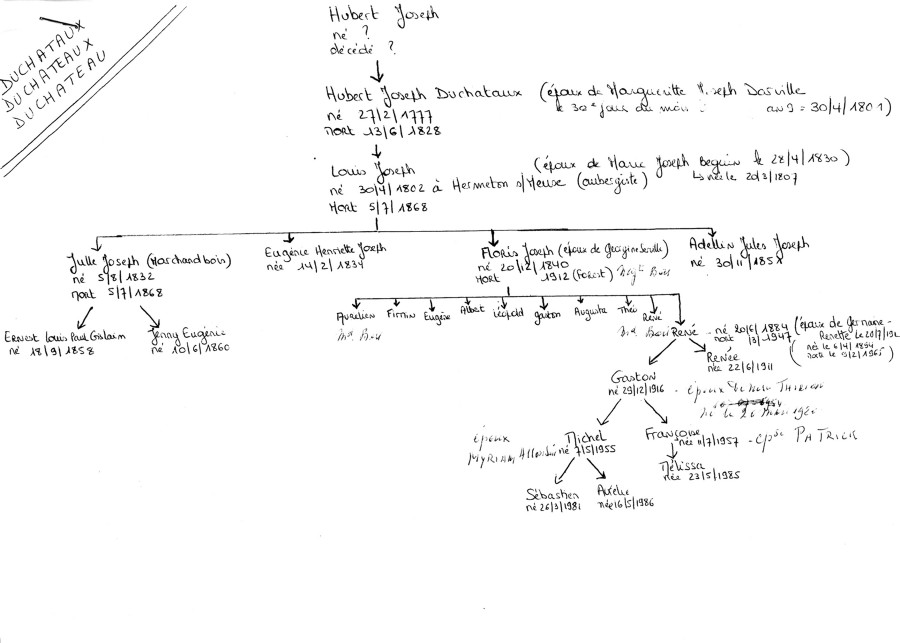 DUCHATAUX
DUCHATEAUX
DUCHATEAU
Hubert Joseph
né ?
décédé ?
Hubert Joseph Duchataux (époux de Margueritte Joseph Dasville
le 30e jour du mois : an 9 = 30/4/1801)
né 27/2/1777
mort 13/6/1828
Louis Joseph (époux de Marie Joseph Beguin le 28/4/1830)
né 30/4/1802 à Hermeton s/Meuse (aubergiste) ↳ née le 20/3/1807
Mort 5/7/1868
Julle Joseph (Marchand bois)
né 5/8/1832
mort 5/7/1868
Eugénie Henriette Joseph
née 14/2/1834
Floris Joseph (époux de Georgine
né 20/12/1840
Mort 1912 (Forest)
Adellin Jules Joseph
né 30/11/185
Ernest Louis Paul Gislain
né 18/9/1858
Jenny Eugénie
né 10/6/1860
Aurelien Firmin Eugène Albert Léopold Gaston Auguste Théo René
René - né 20/6/1884 (époux de Germane
mort /3/1947 Renette le 20/7/19
(née le 6/4/1894
morte le 9/2/1965)
Renée
née 22/6/1911
Gaston
né 29/12/1916 - époux
né le 20
époux
Myriam
Michel
né 7/5/1955
Françoise
née 11/7/1957 - épse PATRICK
Mélissa
née 23/5/1985
Sébastien
né 26/3/1981
Aurélie
née 16/5/1986